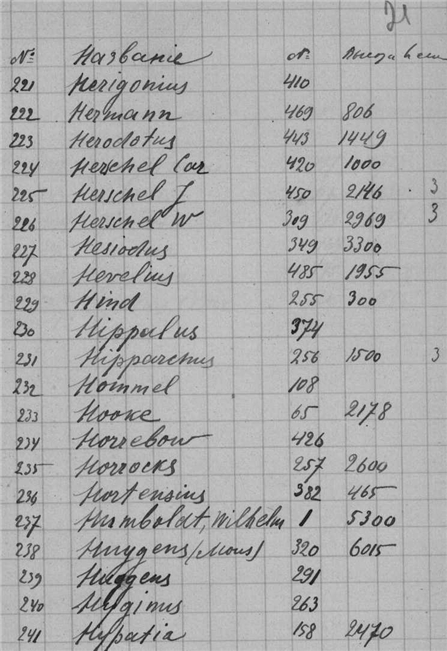 21
№ Название № Высота в см
221 Herigonius 410
222 Hermann 469 806
223 Herodotus 443 1449
224 Herschel Car 420 1000
225 Herschel J 450 2146 3
226 Herschel W 309 2969 3
227 Hesiodus 349 3300
228 Hevelius 485 1955
229 Hind 255 300
230 Hippalus 374
231 Hipparchus 256 1500 3
232 Hommel 108
233 Hooke 65 2178
234 Horrebow 426
235 Horrocks 257 2600
236 Hortensius 382 465
237 Humboldt, Wilhelm 1 5300
238 Huygens (Mons) 320 6015
239 Huggens 291
240 Hyginus 263
241 Hypatia 158 2470